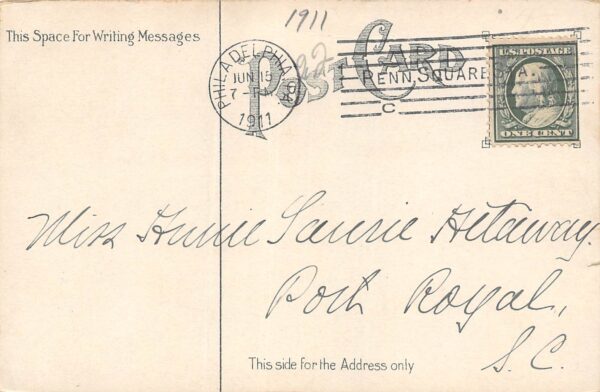 1911
This Space For Writing Messages
POST CARD
PHILADELPHIA, PA.
JUN 15
7 - PM
1911
PENN. SQUARE STA.
C
U.S. POSTAGE
ONE CENT
Miss Annie Laurie Hetaway.
Port Royal,
S. C.
This side for the Address only